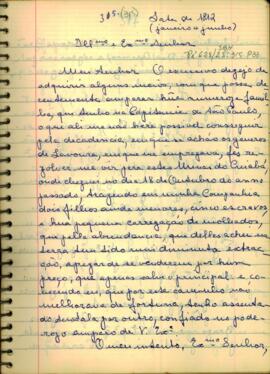 305-(39)
Lata de 1812
(janeiro a junho)
Illmo. e Exmo Senhor
Meu Senhor O excessivo dezejo de
adquirir alguns meios, com que possa de-
centemente amparar huã numeroza fami-
lia, que tenho na Capitania de São Paulo,
o que ali me não hera possivel conseguir
pela decadencia, em que se achão os generos
de Lavoura, em que me empregava, fez re-
solver-me vir para estas Minas do Cuiabá,
onde cheguei no de 18 de Outubro do anno
passado, trazendo em minha Companhia
dois filhos ainda menores, cinco escravos
e huã pequena carregação de molhados,
que pela abundancia, que delles achei na
terra tem tido mui diminuta extrac-
ção, apezar de se venderem por hum
preço, que apenas salva o principal: e co-
nhecendo eu, que por este caminho não
melhorava de fortuna, tenho assenta-
do mudalo por outro, confiado no pode-
rozo amparo de V. Exa.
O meu intento, Exmo Senhor,